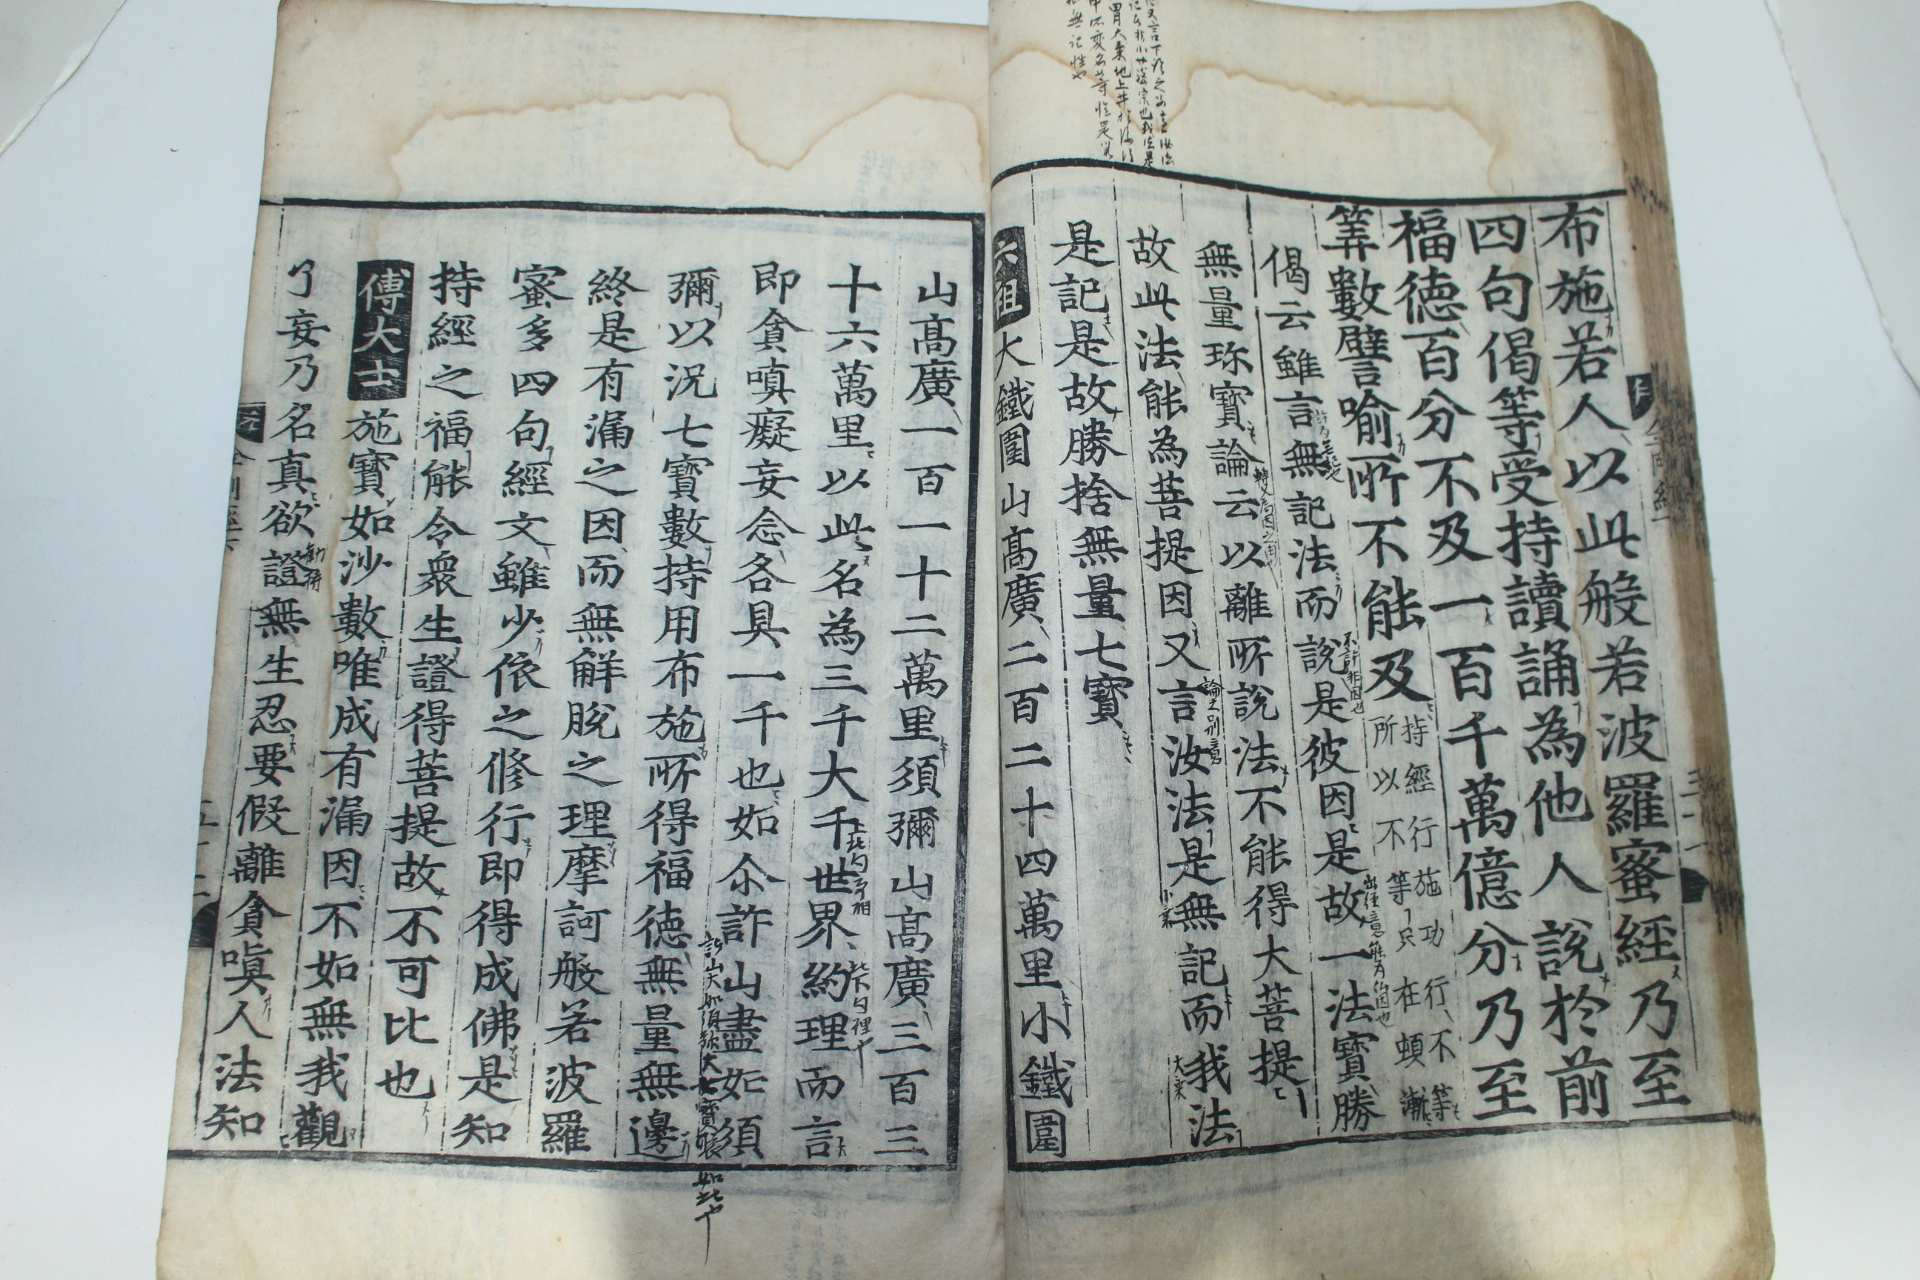 布施若人以此般若波羅蜜經乃至
四句偈等受持讀誦為他人說於前
福德百分不及一百千萬億分乃至
筭數譬喻所不能及
持經行施功行不等
所以不等只在頓漸
偈云雖言無記法而說是彼因是故一法寶勝
無量珎寶論云以離所說法不能得大菩提
故此法能為菩提因又言汝法是無記而我法
是記是故勝捨無量七寶
六祖大鐵圍山高廣二百二十四萬里小鐵圍
山高廣一百一十二萬里須彌山高廣三百三
十六萬里以此名為三千大千世界約理而言
即貪嗔癡妄念各具一千也如尒許山盡如須
彌以況七寶數持用布施所得福德無量無邊
終是有漏之因而無解脫之理摩訶般若波羅
蜜多四句經文雖少依之修行即得成佛是知
持經之福能令衆生證得菩提故不可比也
傅大士施寶如沙數唯成有漏因不如無我觀
了妄乃名真欲證無生忍要假離貪嗔人法知